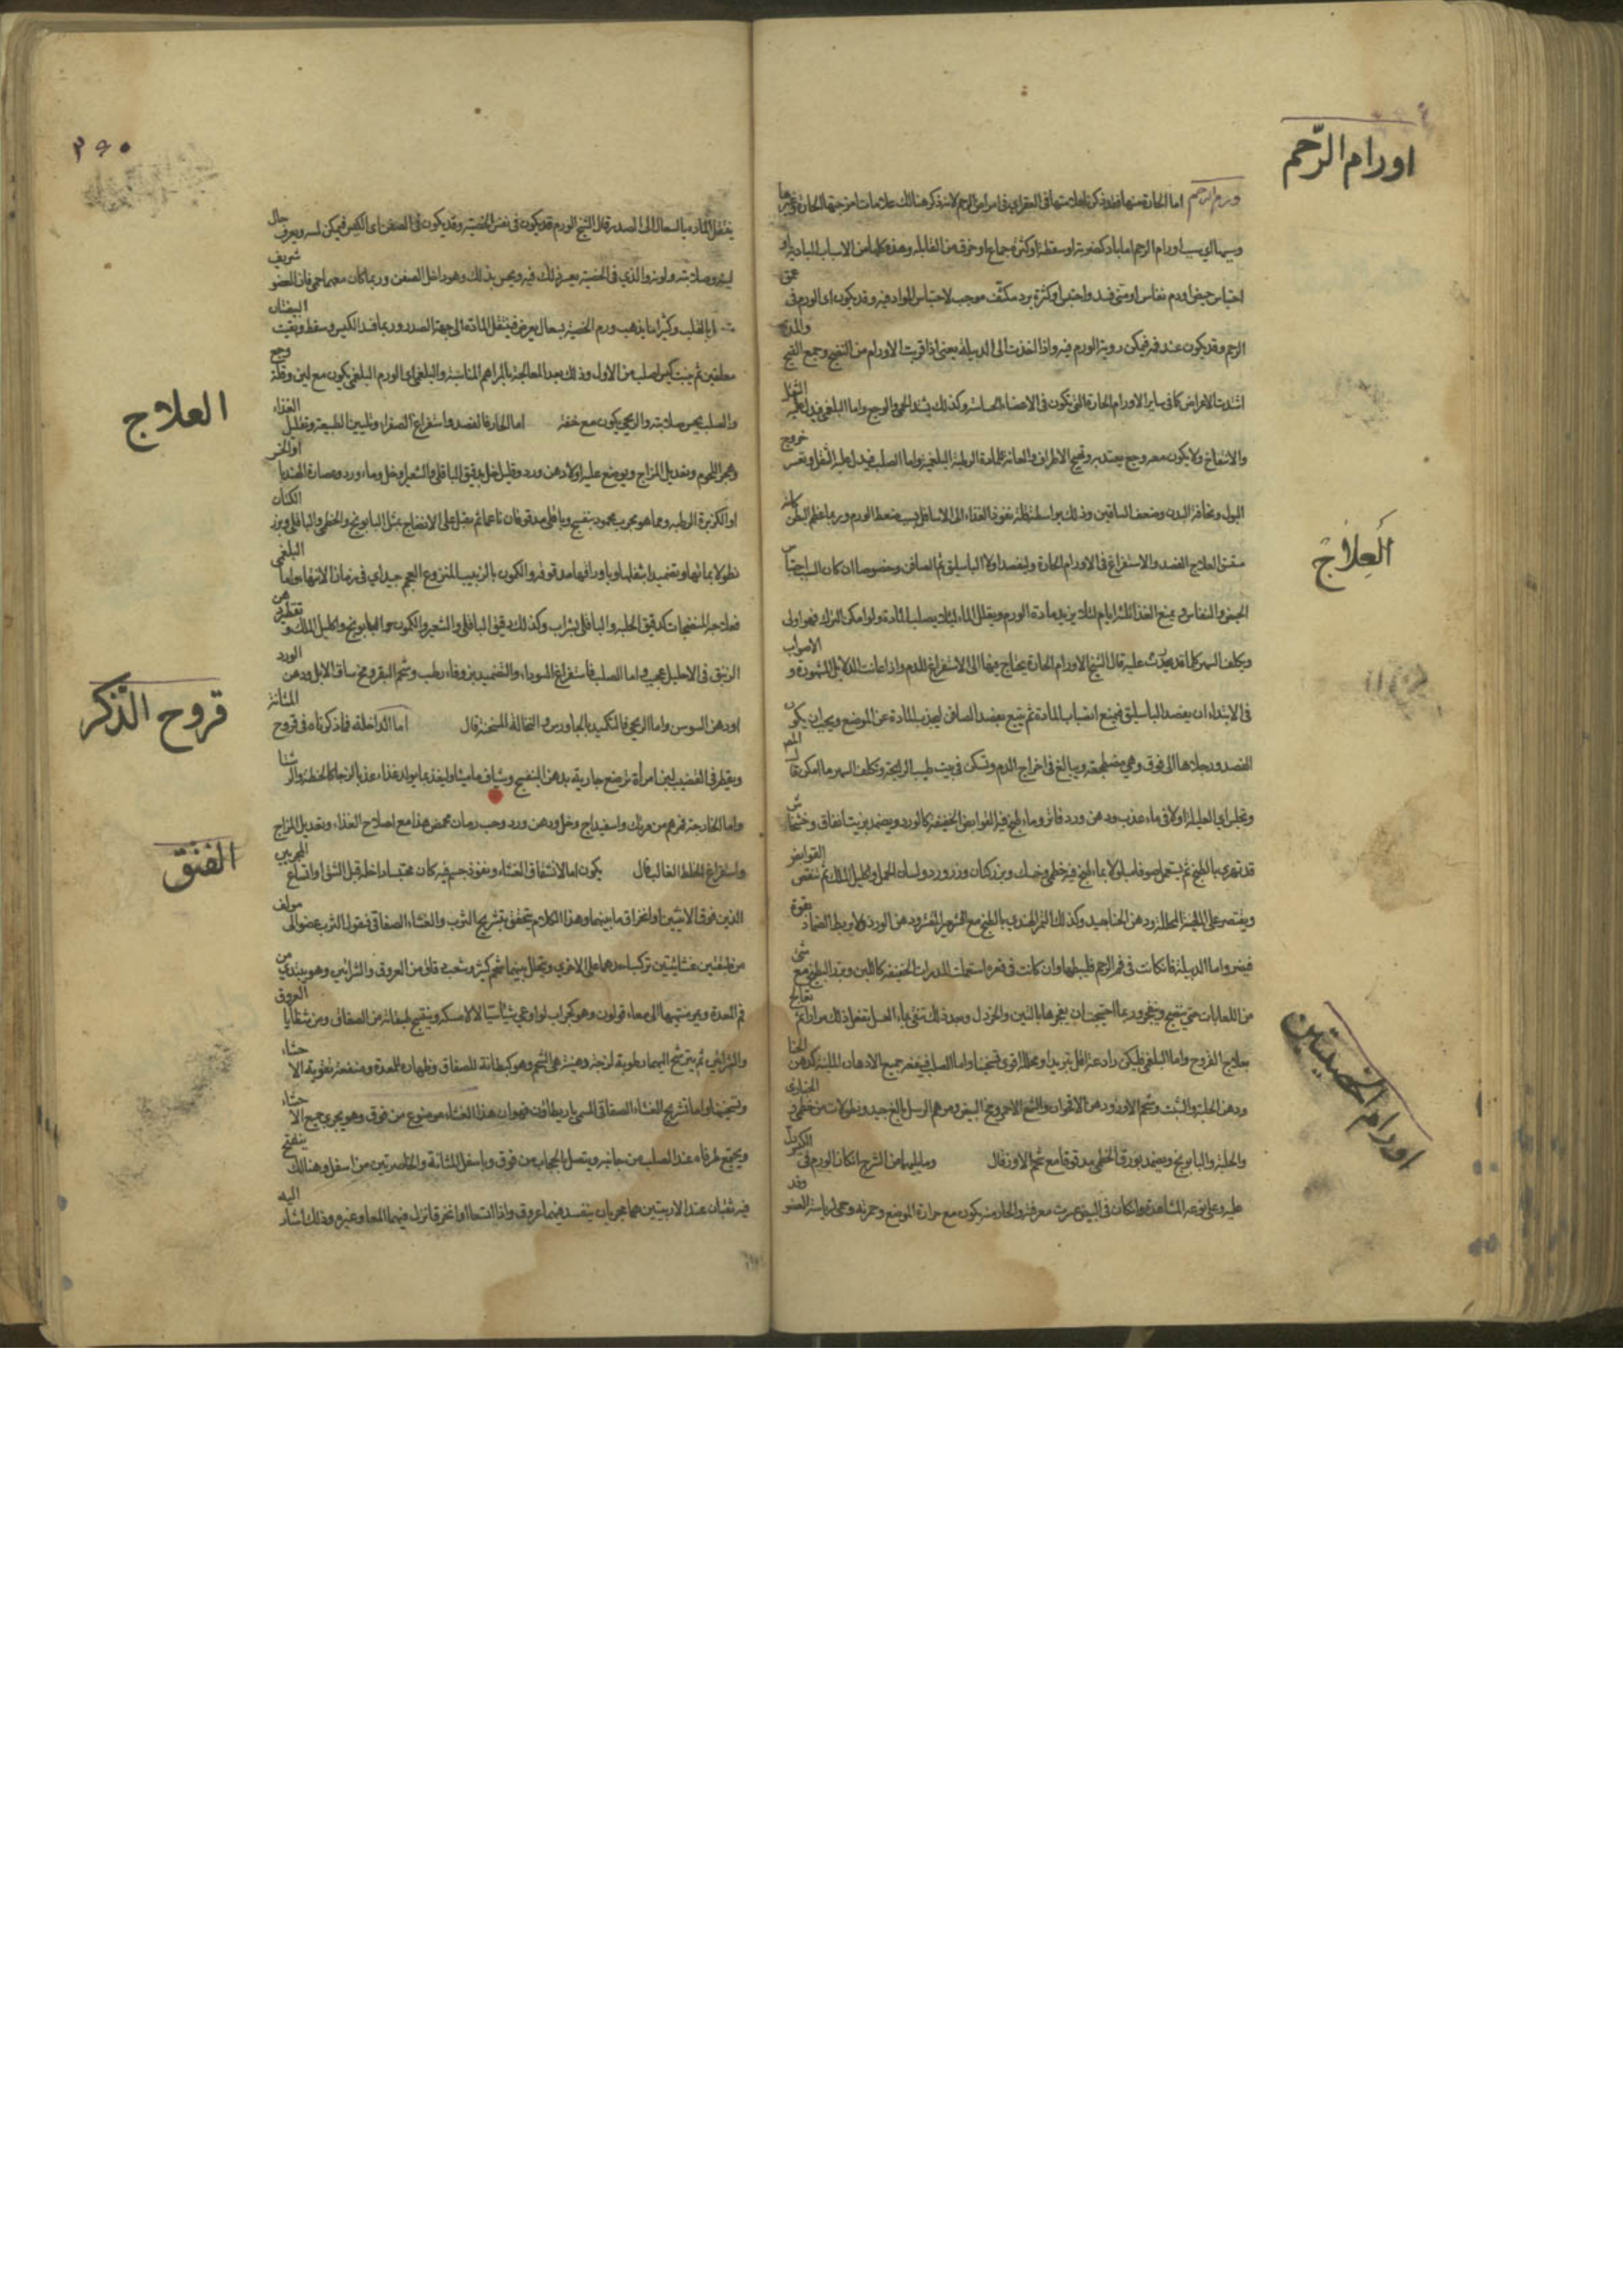 اورام الرّحم
ورم الرحم اما الحارة منها فقد ذكرنا علامتها في امراض الرحم لانه ذكر هنالك علامات امزجتها الحارة وغيرها
وسببها اي سبب اورام الرحم اما باد كضربة او سقطة او كثرة جماع او خرق من القابلة وهذه كلها من الاسباب البادية او
احتباس حيض او دم نفاس او مني فسد واحتبس او كثرة برد مكثف موجب لاحتباس المواد فيه وقد يكون اي الورم في عمق
الرحم وقد يكون عند فمه فيمكن روية الورم فيه واذا اخذت الى الدبيلة يعني اذا قربت الاورام من النضج وجمع القيح والمدة
اشتدت الاعراض كما في ساير الاورام الحارة التي تكون في الاحشاء وكذلك يشتد الحمى والوجع واما البلغمي فيدل عليه الثقل
والانتفاخ ولا يكون معه وجع يعتد به وتهيج الاطراف والعانة للمادة الرطبة البلغمية واما الصلب فيدل عليه الثقل وعسر خروج
البول ونحافة البدن وضعف الساقين وذلك بواسطة قلة نفوذ الغذاء الى الاسافل بسبب ضغط الورم وربما عظم البطن كانه
العلاج
مستسق العلاج الفصد والاستفراغ في الاورام الحارة وليفصد اولا الباسليق ثم الصافن وخصوصا ان كان السبب احتباس
الحيض والنفاس ويمنع الغذا ثلثة ايام لئلا يزيد مادة الورم ويقلل الماء لئلا يصلب المادة ولو امكن الترك فهو اولى
ويكلف السهر كما قد يحدث عليه قال الشيخ الاورام الحارة يحتاج فيها الى الاستفراغ للدم واذا عانت الدلايل المشهورة والاصواب
في الابتداء ان يفصد الباسليق فيمنع انصباب المادة ثم يتبع بفصد الصافن ليجذب المادة عن الموضع ويجب ان يكون
الفصد ورجلاها الى فوق وهي مضطجعة ويبالغ في اخراج الدم وتسكن في بيت طيب الرايحة وتكلف السهر ما امكن
وتجلس اي العليلة اولا في ماء عذب ودهن ورد فاتر وماء طبخ فيه القوابض الخفيفة كالورد ويضمد بزيت انفاق وخشخاش
قد تهرى بالطبخ ثم يستعمل صوفا مبلولا بماء طبخ فيه خطمي وحسك وبزر كتان وزر ورد ولسان الحمل واكليل الملك ثم تنقص القوابض
ويقتصر على الملينة المحللة ودهن الحنا جيد وكذلك التمر الهندي بالطبخ مع الشعير المقشر ودهن الورد ولا يربط الضماد بقوة
فيضر واما الدبيلة فان كانت في فم الرحم فليبطها وان كانت في قعره استعملت المدرات الخفيفة كاللبن وبزر البطيخ مع شئ
من اللعابات حتى ينضج وينفجر وربما احتيج ان يفجرها بالتين والخردل وبعد ذلك تنقى بماء العسل يفعل ذلك مرارا ثم تعالج
بعلاج القروح واما البلغمي فليكن رادعه اقل تبريدا ومحللها اقوى تسخينا واما الصلب فينفعه جميع الادهان الملينة كدهن الحنا
ودهن الحلبة والشبت وشحم الاوز ودهن الاقحوان والشمع الاحمر ومخ البيض ومرهم الرسل بالغ جيد ونطولات من خطمي
اورام الخصيتين
والحلبة والبابونج ويضمد بورق الخطمي مدقوقا مع شحم الاوز قال وما يليها من الشرج ان كان الورم في
عليه وعلى نوعه المشاهدة وان كان في البيض عرف معرفته والحار منه يكون مع حرارة الموضع وحمرته وحمى لرياسة العضو وقد
ينتقل المادة بالسعال الى الصدر قال الشيخ الورم قد يكون في نفس الخصية وقد يكون في الصفن اي الكيس فيمكن لمسه ويعرف حال
لينه وصلابته ولونه والذي في الخصية يعسر ذلك فيه ويحس بذلك وهو داخل الصفن وربما كان معها حمى فان العضو شريف
بالقلب وكثيرا ما يذهب ورم الخصية بسعال يعرض فينتقل المادة الى جهة الصدر وربما فسد الكيس وسقط وبقيت البيضتان
معلقتين ثم ينبت كيس اصلب من الاول وذلك بعد المعالجة بالمراهم المناسبة والبلغمي اي الورم البلغمي يكون مع لين وقلة وجع
العلاج
والصلب يحس صلابته والريحي يكون مع خفة اما الحار فالفصد واستفراغ الصفراء وتليين الطبيعة وتقليل الغذاء
وهجر اللحوم وتعديل المزاج ويوضع عليه اولا دهن ورد وقليل خل ودقيق الباقلى والشعير او خل وماء ورد وعصارة الهندبا
او الكزبرة الرطبة ومما هو مجرب محمود بنفسج وباقلى مدقوقان ناعما ثم يقبل على الانضاج بمثل البابونج والخطمي والباقلى وبزر الكتان
نطولا بمائها وتضميدا بثفلها او باوراقها مدقوقة والكمون بالزبيب المنزوع العجم جيد اي في زمان الانتهاء واما البلغمي
فعلاجه المنضجات كدقيق الحلبة والباقلى بشراب وكذلك دقيق الباقلى والشعير والكمون والبابونج واكليل الملك وتقطير دهن
الزنبق في الاحليل عجيب واما الصلب فاستفراغ السوداء والتضميد بزوفاء رطب وشحم البقر ومخ ساق الابل ودهن الورد
قروح الذّكر
او دهن السوسن واما الريحي فالتكميد بالجاورس والنخالة المسخنة قال اما الداخلة فما ذكرناه في قروح المثانة
ويقطر في القضيب لبن امراة ترضع جارية بدهن البنفسج وشياف ماميثا وليغذ بما يولد غذاء عذبا لزجا كالحنطة
واما الخارجة فمرهم من مرتك واسفيداج وخل ودهن ورد وحب رمان محمض هذا مع اصلاح الغذاء وتعديل المزاج
الفتق
واستفراغ الخلط الغالب قال يكون اما لانشقاق الغشاء ونفوذ جسم فيه كان محتبسا داخله قبل الشق او اتساع المجريين
الذين فوق الانثيين او انخراق ما بينهما وهذا الكلام يتحقق بتشريح الثرب والغشاء الصفاقي فنقول الثرب عضو الى مولف
من طبقتين غشائيتين تركب احدهما على الاخرى ويتخلل بينهما شحم كثير وشعب دقاق من العروق والشرايين وهو يبتدي من
فم المعدة ومنتهاها الى معاء قولون وهو كجراب لو اوعي شيئا سيالا لامسكه وينسج طبقاته من الصفاق ومن شظايا العروق
والشرايين ثم يترشح اليهما رطوبة لزجة دهنية هي الشحم وهو كبطانة للصفاق وظهارة للمعدة ومنفعته تقوية الاحشاء
وتسخينها واما تشريح الغشاء الصفاقي المسمى باريطاون فهو ان هذا الغشاء موضوع من فوق وهو يحوي جميع الاحشاء
ويجتمع طرفاه عند الصلب من جانبيه ويتصل بالحجاب من فوق وباسفل المثانة والخاصرتين من اسفل وهنالك ينفتح
فيه ثقبان عند الاربيتين هما مجريان ينفذ فيهما عروق واذا اتسعا او انخرقا نزل فيهما المعا وغيره وذلك اشار اليه